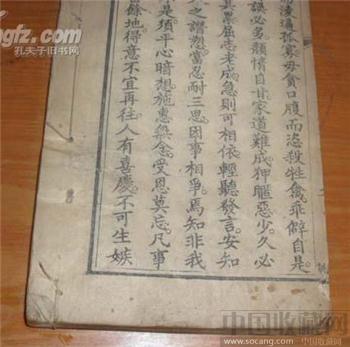 凌逼孤寡毋貪口腹而恣殺牲禽乖僻自是
誤必多頹惰自甘家道難成狎暱惡少久必
其累屈志老成急則可相依輕聽發言安知
人之譖愬當忍耐三思因事相爭焉知非我
是須平心暗想施惠無念受恩莫忘凡事
餘地得意不宜再往人有喜慶不可生嫉
gfz.com
孔夫子旧书网
中国收藏网
www.socang.com